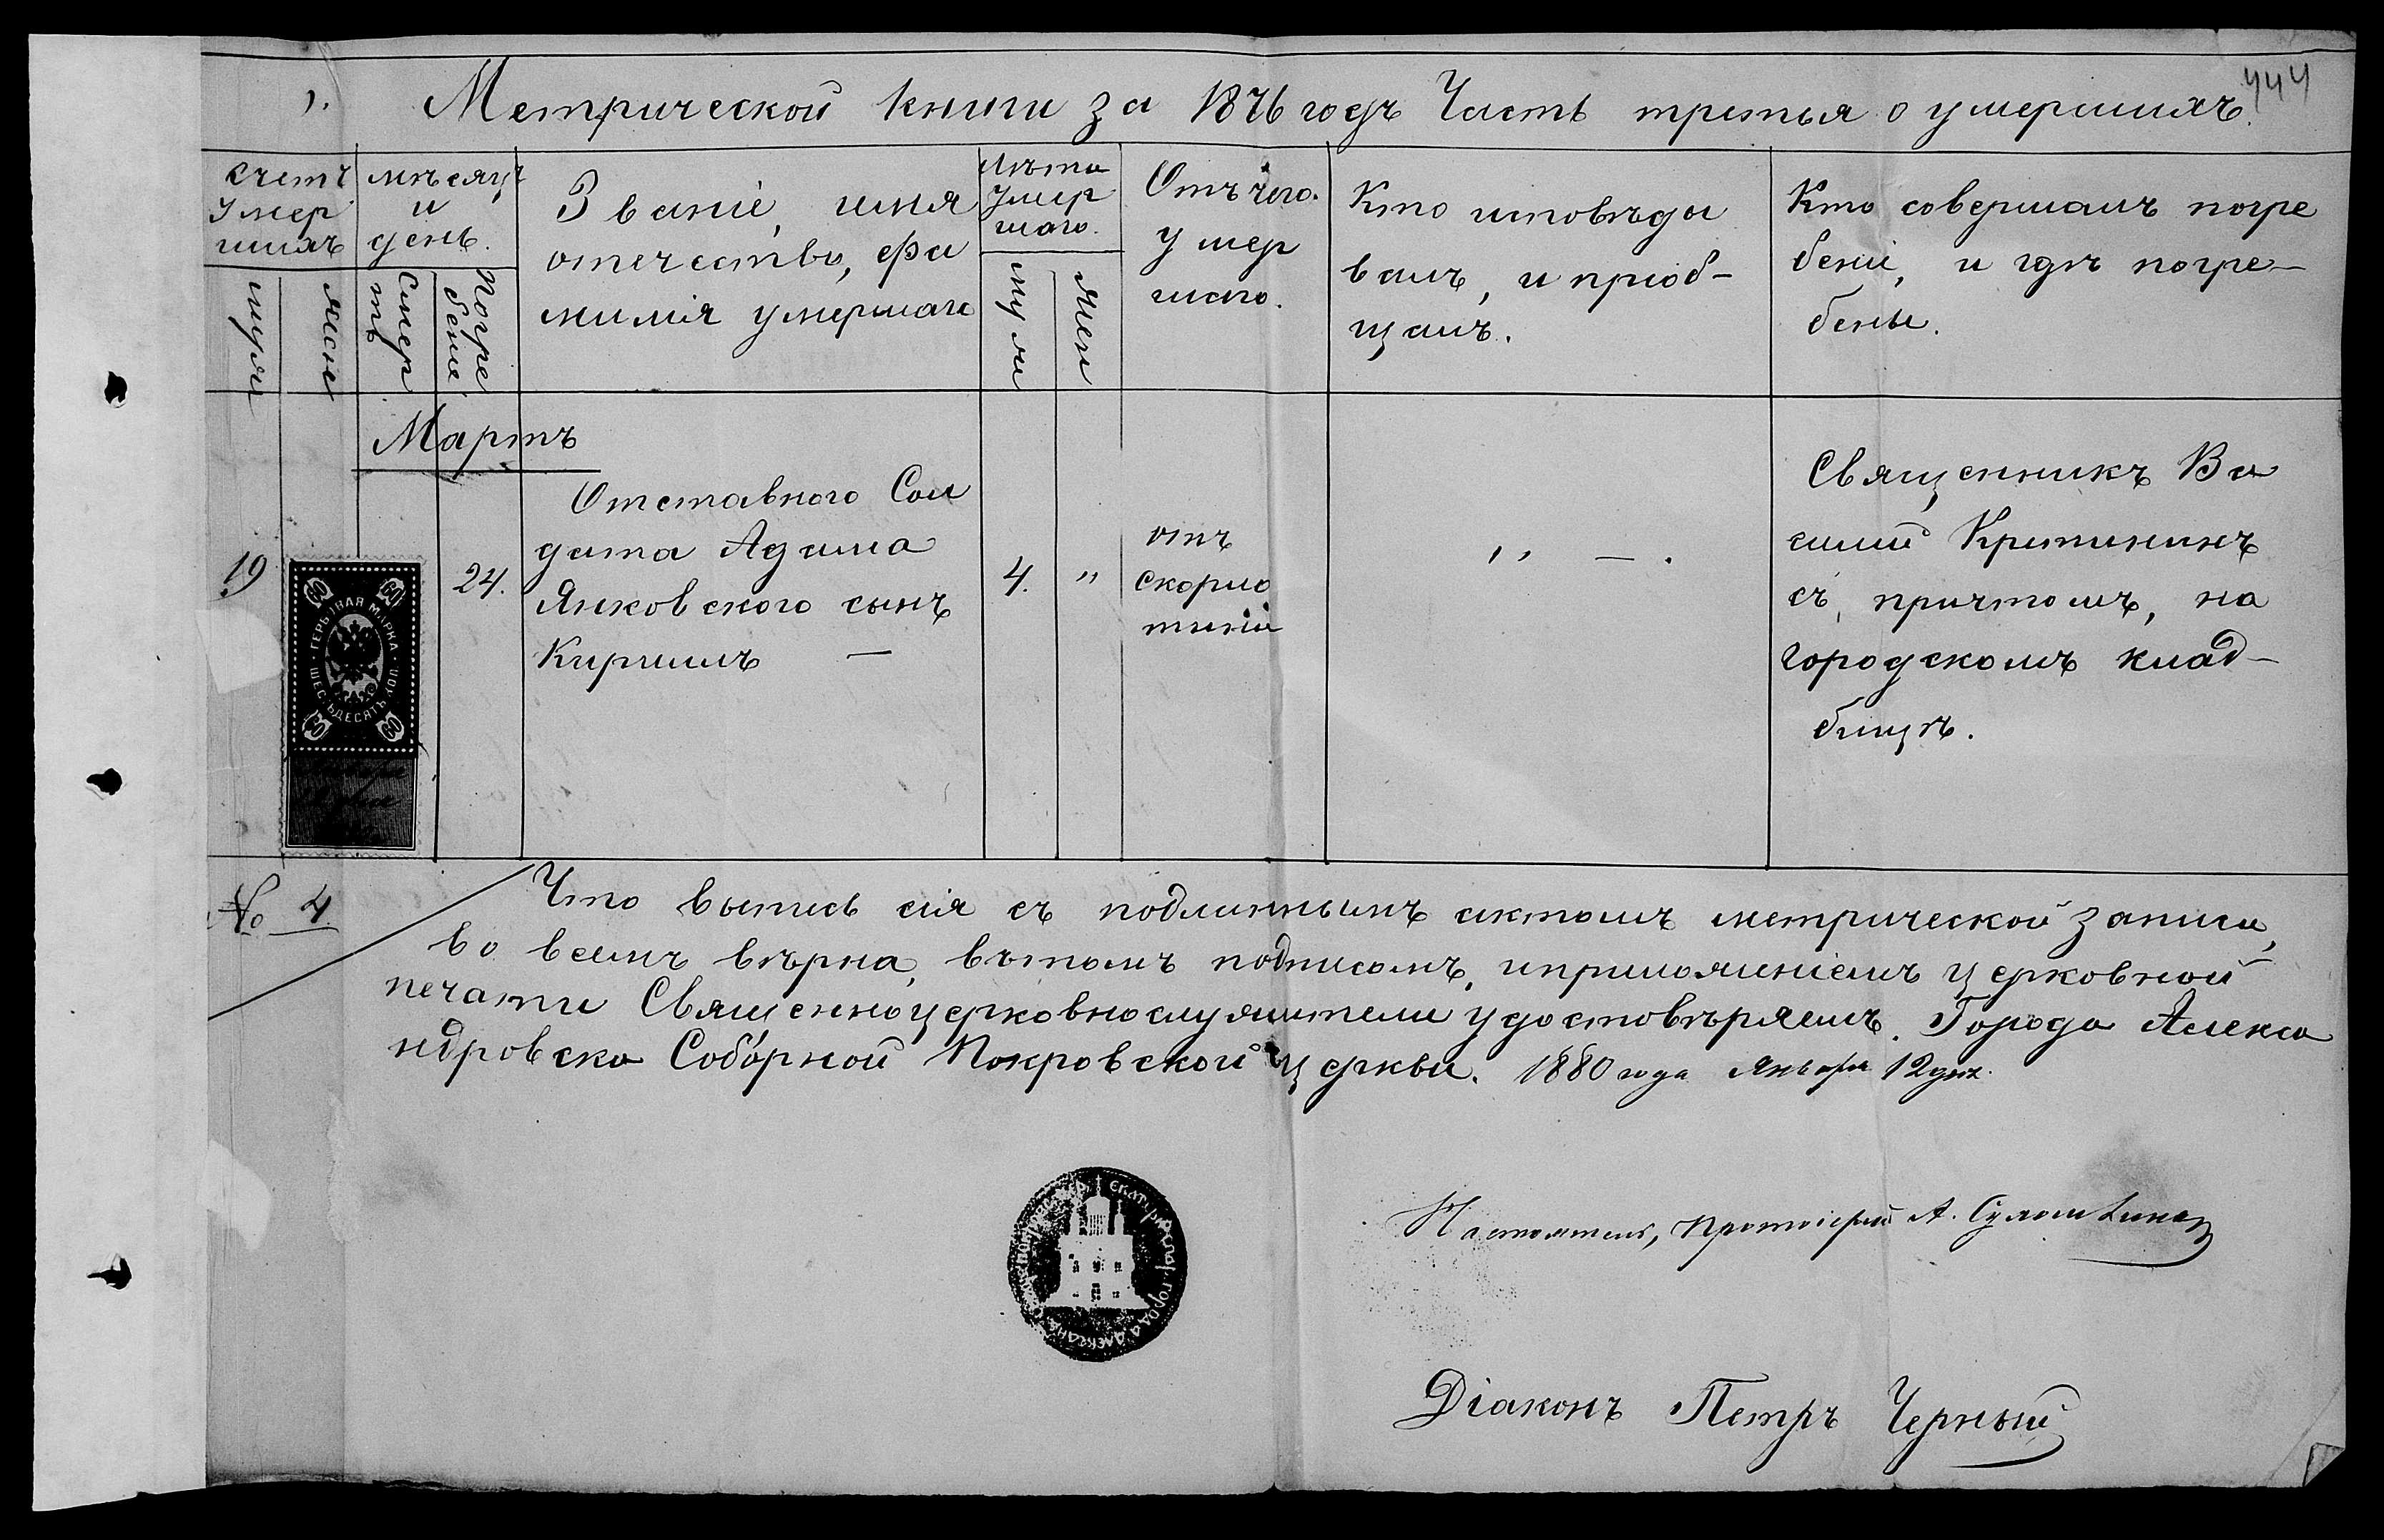 444
1. Метрической книги за 1876 годъ Часть третья о умершихъ.
счетъ
умер
шихъ
мужс
женс
мѣсяцъ
и
день.
Смер
ть
Погре
бенiе
Званiе, имя
отчество, фа
милiя умершаго
Лѣта
умер
шаго.
муж
жен
Отъ чего
умер
шаго.
Кто исповѣды
валъ, и прiоб-
щалъ.
Кто совершалъ погре
бенiе, и гдѣ погре-
бены.
Мартъ
19
24.
Отставного Сол
дата Адама
Янковского сынъ
Кириллъ —
4.
"
отъ
скорло
тины
" — .
Священникъ Ва
силий
съ причтомъ, на
городскомъ клад-
бищѣ.
ГЕРБОВАЯ МАРКА
ШЕСТЬДЕСЯТЪ КОП.
60 60
60 60
№ 4
Что выпись сiя съ подлиннымъ актомъ метрической записи,
во всемъ вѣрна, въ томъ подписомъ, и приложенiемъ церковной
печати Священноцерковнослужители удостовѣряемъ. Города Алекса
ндровска Соборной Покровской церкви. 1880 года Января 12 дня.
Настоятель, Протоiерей А.
Дiаконъ Петръ Черный